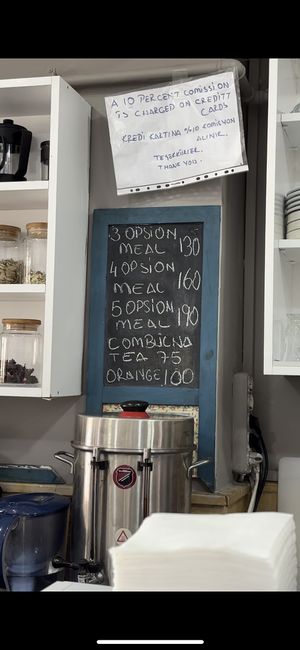 A 10 PERCENT COMISSION
IS CHARGED ON CREDITT
CARDS
KREDI KARTINA %10 KOMISYON
ALINIR.
TEŞEKKÜRLER.
THANK YOU.
3 OPSION
MEAL 130
4 OPSION
MEAL 160
5 OPSION
MEAL 190
COMBUCHA
TEA 75
ORANGE 100